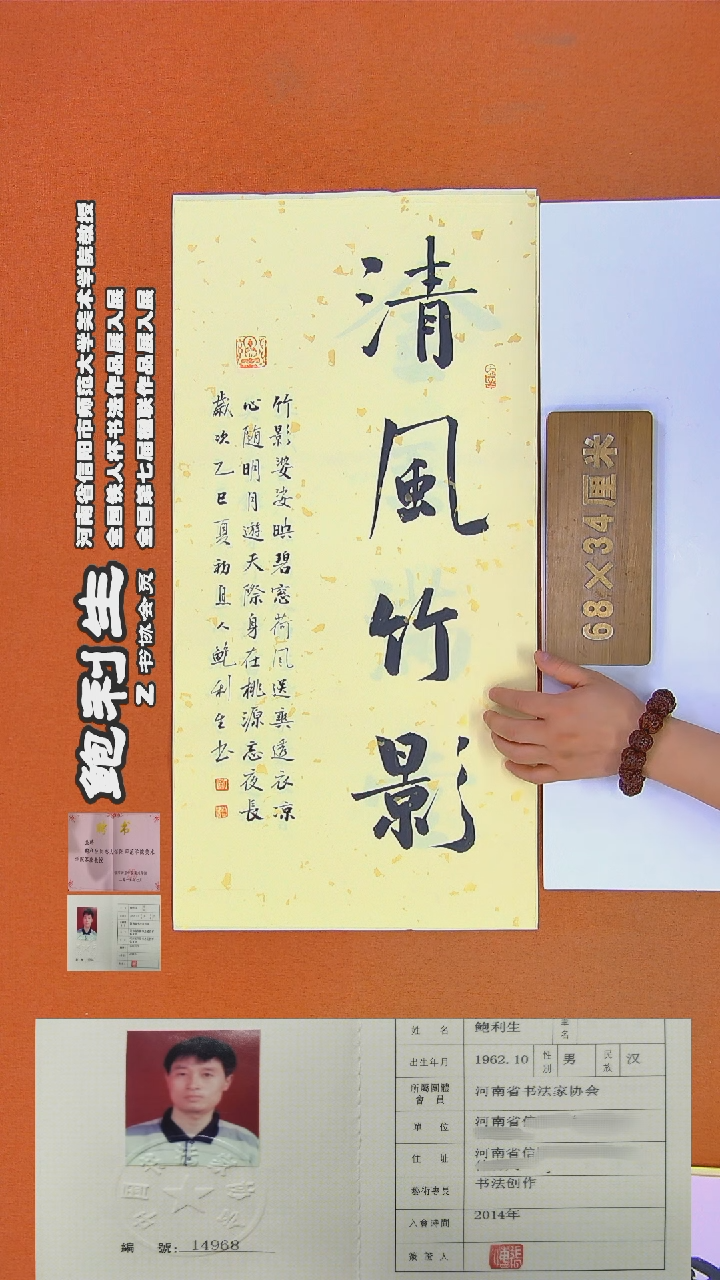 清風竹影
竹影婆娑映碧窓荷风送爽透衣凉
心随明月遊天際身在桃源忘夜長
歲次乙巳夏初旦人鲍利生书
68×34厘米
河南省信阳市师范大学美术学院教授
全国铁人杯书法作品展入展
全国第七届楹联作品展入展
鲍利生
Z书协会员
聘书
姓 名 鲍利生
出生年月 1962.10 性别 男 民族 汉
所屬團體 會員 河南省书法家协会
單 位 河南省信
住 址 河南省信
藝術專長 书法创作
入會時間 2014年
簽發人
編 號: 14968